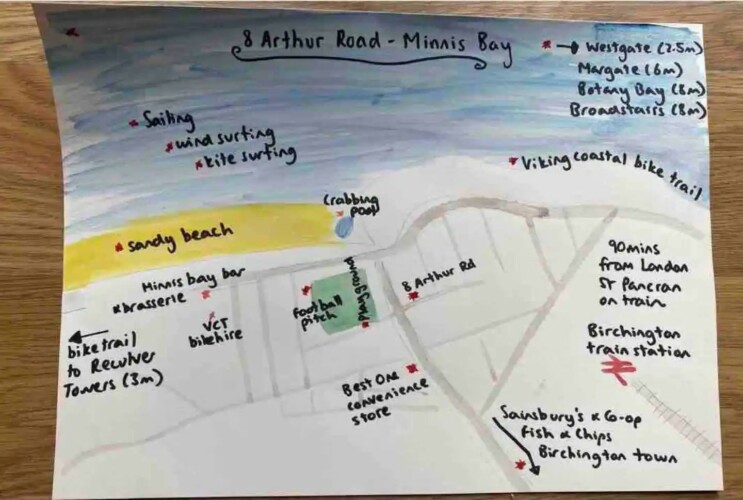 8 Arthur Road - Minnis Bay
→ Westgate (2.5m)
Margate (6m)
Botany Bay (8m)
Broadstairs (8m)
Sailing
wind surfing
kite surfing
Viking coastal bike trail
Crabbing
pool
Sandy beach
Minnis bay bar
& brasserie
VCT
bikehire
Football
pitch
playground
8 Arthur Rd
90mins
from London
St Pancran
on train
Birchington
train station
bike trail
to Reculver
Towers (3m)
Best One
convenience
store
Sainsbury's & Co-op
Fish & Chips
Birchington town